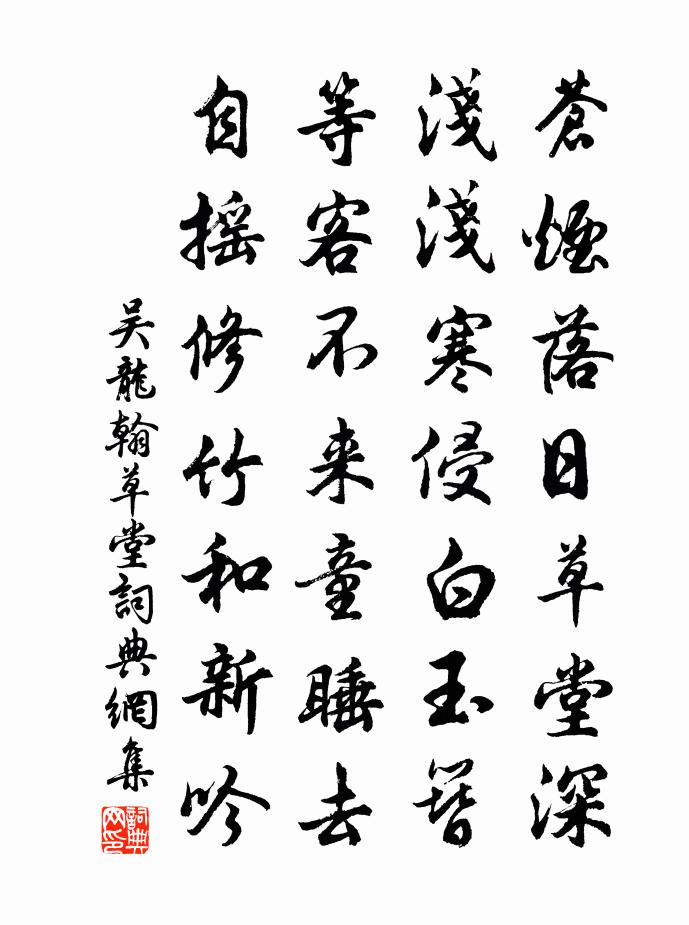 蒼煙落日草堂深
淺淺寒侵白玉簪
等客不来童睡去
自摇修竹和新吟
吴龍翰草堂詞典網集
詞典网印